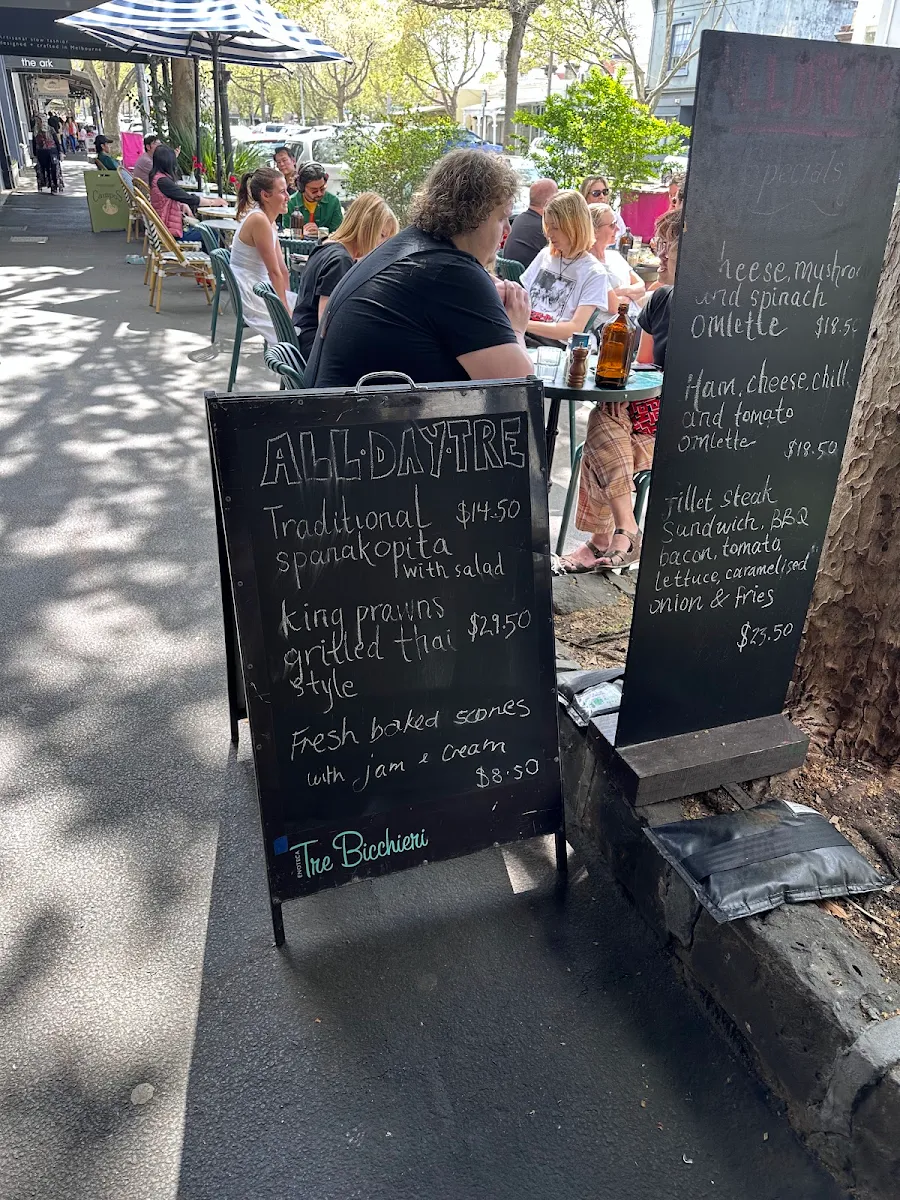 designed + crafted in Melbourne
the ark
ALL·DAY·TRE
Traditional $14.50
spanakopita
with salad
king prawns
grilled thai $29.50
style
Fresh baked scones
with jam & cream
$8.50
ENOTECA
Tre Bicchieri
Specials
heese, mushro
and spinach
omlette $18.50
Ham, cheese, chill
and tomato
omlette $18.50
fillet steak
Sandwich, BBQ
bacon, tomato,
lettuce, caramelised
onion & fries
$23.50